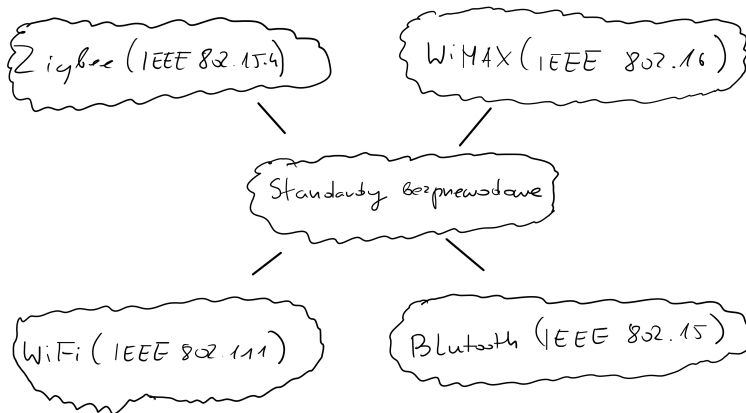 Zigbee (IEEE 802.15.4)
WiMAX (IEEE 802.16)
Standardy bezprzewodowe
WiFi (IEEE 802.111)
Blutooth (IEEE 802.15)